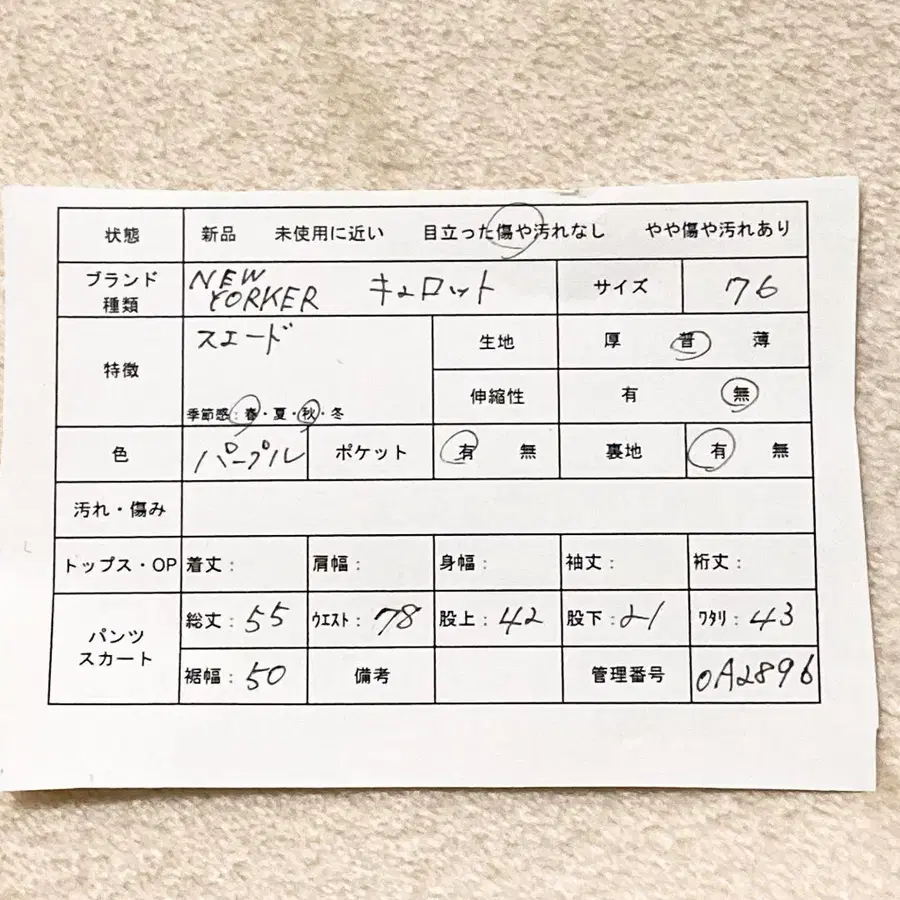 状態 新品 未使用に近い 目立った傷や汚れなし やや傷や汚れあり
ブランド 種類 NEW YORKER キュロット サイズ 76
特徴 スエード 生地 厚 普 薄
季節感：春・夏・秋・冬 伸縮性 有 無
色 パープル ポケット 有 無 裏地 有 無
汚れ・傷み
トップス・OP 着丈： 肩幅： 身幅： 袖丈： 裄丈：
パンツ スカート 総丈：55 ウエスト：78 股上：42 股下：21 ワタリ：43
裾幅：50 備考 管理番号 0A2896